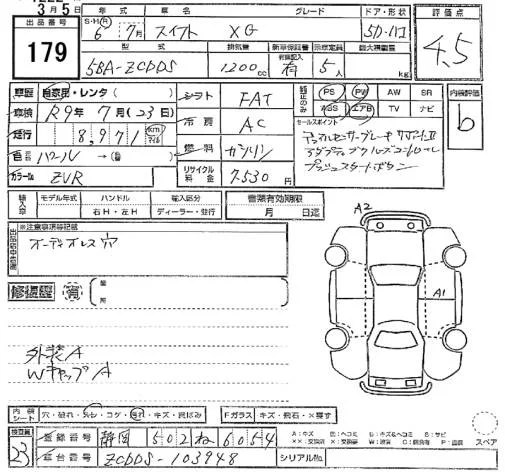 3月5日
出品番号 179
年式 車名 グレード ドア・形状 評価点
S・H・R 6 7月 スイフト XG 5D・HB 4.5
型式 排気量 新車保証書 示乗定員 最大積載量
有無記入
5BA-ZCDDS 1200cc 有 5人 kg
車歴 自家用・レンタ( ) シフト FAT
PS PW AW SR
ABS エアB TV ナビ
内装評価 b
車検 R9年7月(23日) 冷房 AC
セールスポイント
走行 8,971 km マイル 燃料 ガソリン
デュアルセンサーブレーキサポートⅡ
アダプティブクルーズコントロール
プッシュスタートボタン
色名 パール →(色)
カラーNo. ZVR リサイクル料金 7530円
輸入車 モデル年式 ハンドル 輸入区分
右H・左H ディーラー・並行
書類有効期限
月 日迄
※注意事項等記載
オーディオレス 穴
A2
A1
修復歴 有
箇所
外装A
WキャップA
内装シート 穴・破れ・スレ・コゲ・汚れ・キズ・黄ばみ
Fガラス キズ・飛石・×残す
検査員 23
登録番号 静岡 502 ね 6054
車台番号 ZCDDS-103948 シリアルNo.
スペア